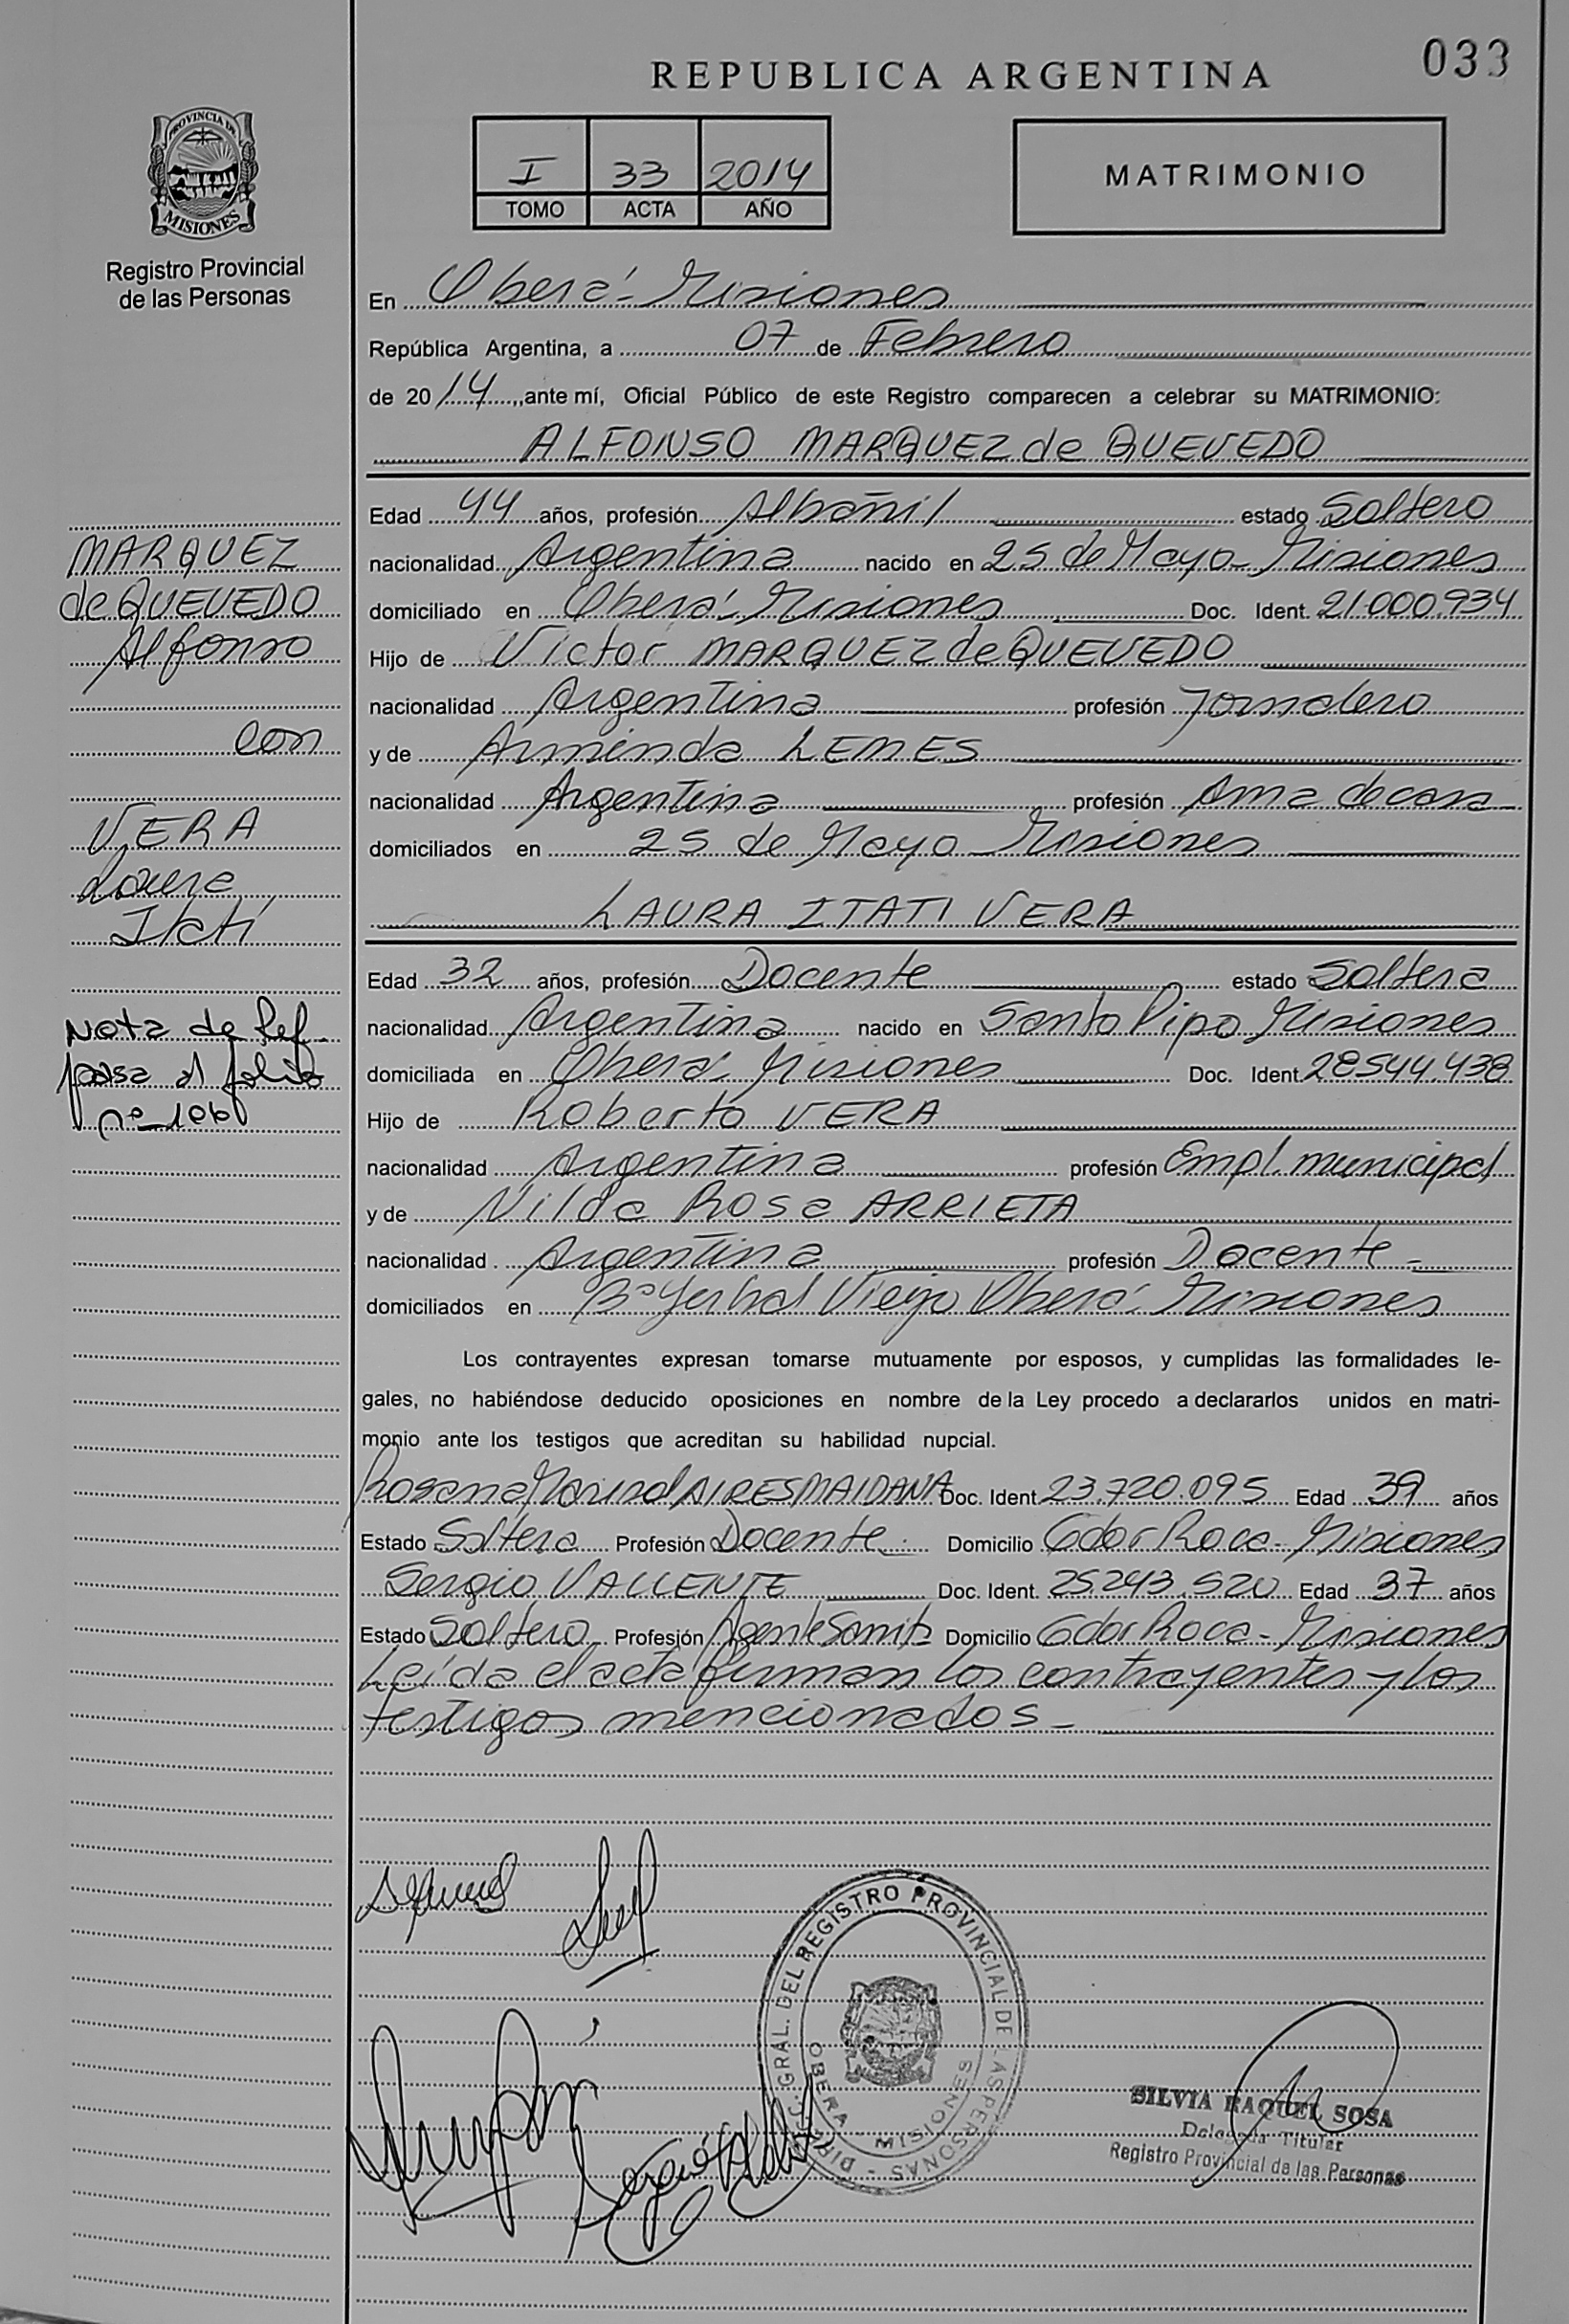 033
REPUBLICA ARGENTINA
I 33 2014
TOMO ACTA AÑO
MATRIMONIO
PROVINCIA DE
MISIONES
Registro Provincial
de las Personas
En Oberá - Misiones
República Argentina, a 07 de Febrero
de 2014, ante mí, Oficial Público de este Registro comparecen a celebrar su MATRIMONIO:
ALFONSO MARQUEZ de QUEVEDO
Edad 44 años, profesión Albañil estado Soltero
nacionalidad Argentina nacido en 25 de Mayo - Misiones
domiciliado en Oberá - Misiones Doc. Ident. 21.000.934
Hijo de Víctor MARQUEZ de QUEVEDO
nacionalidad Argentina profesión Jornalero
y de Arminda LEMES
nacionalidad Argentina profesión Ama de casa
domiciliados en 25 de Mayo - Misiones
LAURA ITATI VERA
Edad 32 años, profesión Docente estado Soltera
nacionalidad Argentina nacido en Santo Pipo Misiones
domiciliada en Oberá - Misiones Doc. Ident. 28544.438
Hijo de Roberto VERA
nacionalidad Argentina profesión Empl. municipal
y de Nilda Rosa ARRIETA
nacionalidad Argentina profesión Docente -
domiciliados en B° Yerbal Viejo Oberá - Misiones
Los contrayentes expresan tomarse mutuamente por esposos, y cumplidas las formalidades le-
gales, no habiéndose deducido oposiciones en nombre de la Ley procedo a declararlos unidos en matri-
monio ante los testigos que acreditan su habilidad nupcial.
Rosana Marisol AIRES MAIDANA Doc. Ident. 23.720.095 Edad 39 años
Estado Soltera Profesión Docente Domicilio Gdor Roca - Misiones
Sergio VALLENTE Doc. Ident. 25.243.520 Edad 37 años
Estado Soltero Profesión Agente Sanit. Domicilio Gdor Roca - Misiones
Leída el acta firman los contrayentes y los
testigos mencionados -
MARQUEZ
de QUEVEDO
Alfonso
con
VERA
Laura
Itatí
Nota de Ref.
pasa al folio
n° 106
DIREC. GRAL. DEL REGISTRO PROVINCIAL DE LAS PERSONAS
OBERA - MISIONES
SILVIA RAQUEL SOSA
Delegada Titular
Registro Provincial de las Personas